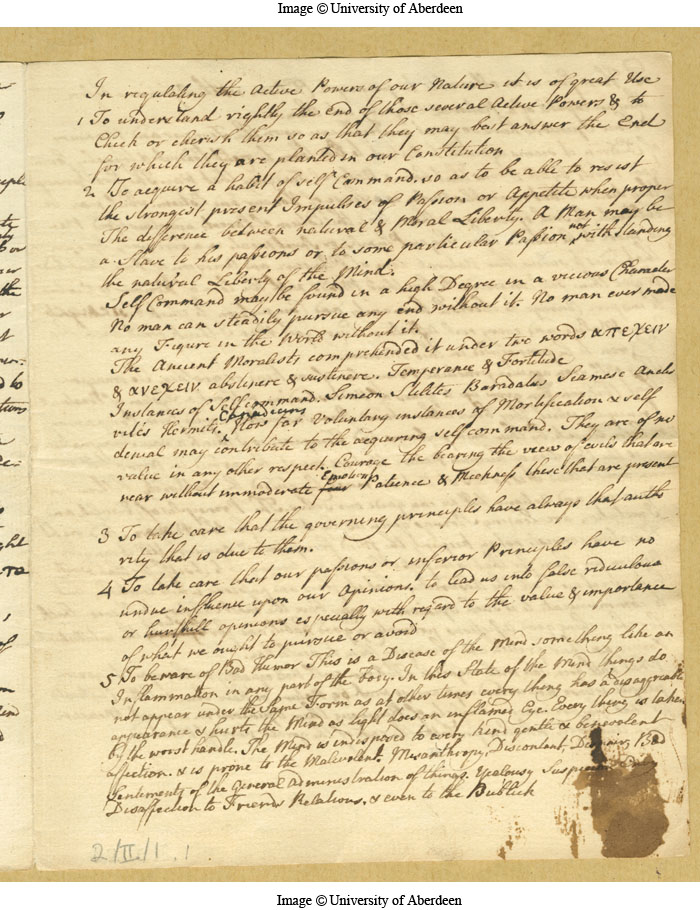 Image © University of Aberdeen
In regulating the Active Powers of our Nature it is of great Use
1 To understand rightly the End of those several Active Powers & to
Check or cherish them so as that they may best answer the End
for which they are planted in our Constitution
2 To acquire a habit of self Command. so as to be able to resist
the strongest present Impulses of Passion or Appetite when proper
The difference between natural & Moral Liberty. A Man may be
a Slave to his passions or to some particular Passion notwithstanding
the natural Liberty of the Mind.
Self Command may be found in a high Degree in a vicious Character
No man can steadily pursue any end without it. No man ever made
any Figure in the World without it.
The Ancient Moralists comprehended it under two words απεχειν
& ανεχειν abstinere & sustinere. Temperance & Fortitude
Instances of Self command. Simeon Stilites Baradatus Siamese Anch
rites Hermits. How far Voluntary instances of Mortification & self
denial may contribute to the acquiring self command. They are of no
value in any other respect. Courage the bearing the view of evils that are
near without immoderate Emotion Patience & Meekness these that are present
3 To take care that the governing principles have always that autho
rity that is due to them.
4 To take care that our passions or inferior Principles have no
undue influence upon our Opinions. to lead us into false ridiculous
or hurtfull opinions especially with regard to the value & importance
of what we ought to pursue or avoid
5 To beware of Bad Humor This is a Disease of the Mind something like an
Inflammation in any part of the body. In this State of the Mind things do
not appear under the Same Form as at other times every thing has a disagreable
appearance & hurts the Mind as light does an inflamed Eye. Every thing is taken
by the worst handle. The Mind is indisposed to every kind gentle & benevolent
affection. & is prone to the Malevolent. Misanthropy, Discontent, Bad
Sentiments of the general administration of things. Jealousy
Disaffection to Friends Relations, & even to the Publick
2/II/1.1.
Image © University of Aberdeen